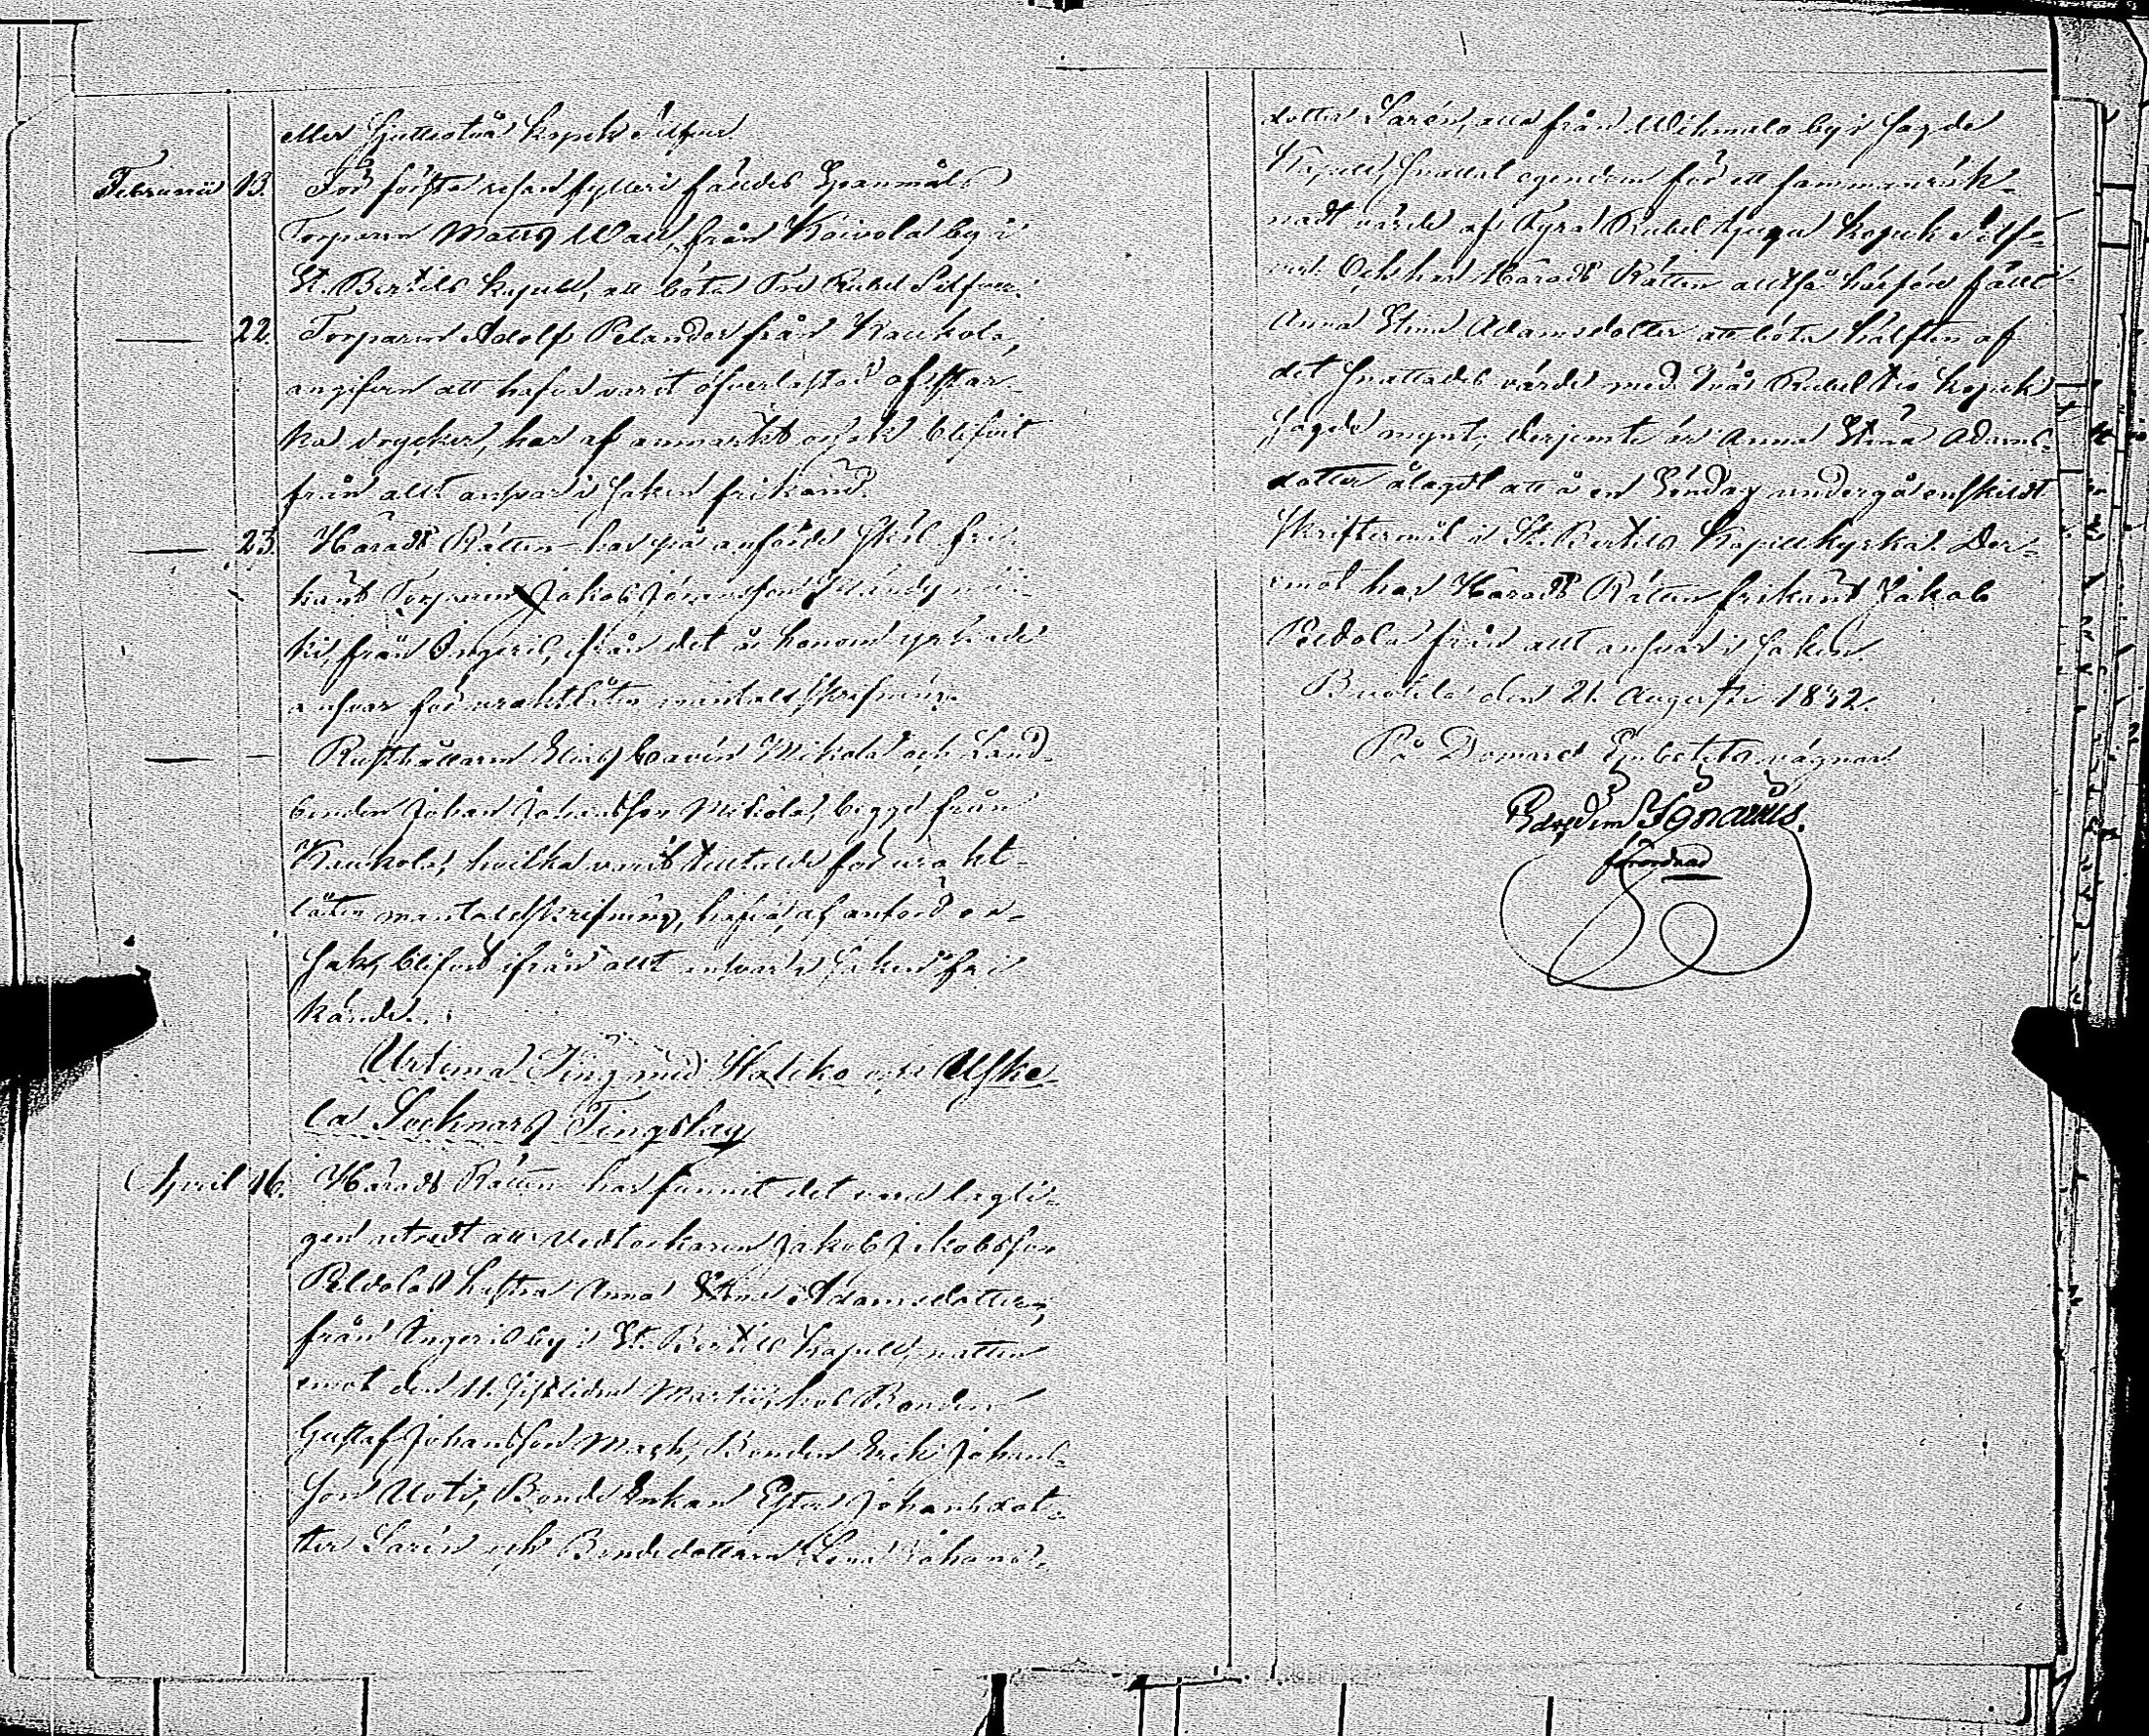 eller Sjuttiotvå kopek silfver
Februarii 13. För första resan fylleri fälldes Spanmåls
Torparen Matts Wall, från Koivola by i
St. Bertils kapell, att böta Tre Rubel Silfver.
22. Torparen Adolf Pelander från Kaukola,
angifven att hafva varit öfverlastad af star-
ka drycker, har af anmärkt orsak blifvit
från allt ansvar i saken frikänd.
23. Härads Rätten har på anförde skäl fri-
känt Torparen Jakob Jöransson
ki, från Ingeris, ifrån det å honom yrkade
ansvar för uraktlåten mantalsskrifning.
Rusthållaren Elias Mikola och Land-
bonden Johan Johansson Mikola, begge från
Kaukola, hvilka varit tilltalde för urakt-
låten mantalsskrifning, hafva, af anförd or-
sak, blifvit ifrån allt ansvar i saken fri
kände.
Urtima Ting med Halikko och Uske-
la Socknars Tingslag
April 16. Härads Rätten har funnit det vara lagli-
gen utredt att Jakob Jakobsson
Peldolas hustru Anna Stina Adamsdotter,
från Ingeris by i St. Bertils kapell, natten
emot den 11. sistliden Martii, hos Bonden
Gustaf Johansson Bonden Erik Johans-
son Uoti, Bonde Enkan Ester Johansdot-
ter Sarén och Bondedottern Lena Johans-
dotter Sarén, alla från by i sagde
Kapell, snattat egendom för ett sammanräk-
nadt värde af Fyra Rubel tjugu kopek silf-
ver. Och har Härads Rätten alltså härföre fällt
Anna Stina Adamsdotter att böta hälften af
det snattades värde med Två Rubel tio kopek
sagde mynt; derjemte är Anna Stina Adams-
dotter ålagdt att å en Söndag undergå enskildt
skriftermål i St. Bertils Kapellkyrka. Der-
emot har Härads Rätten frikänt Jakob
Peldola från allt ansvar i saken.
den 21. Augusti 1842.
På Domare Embetets vägnar
Ignatius.
förordnad